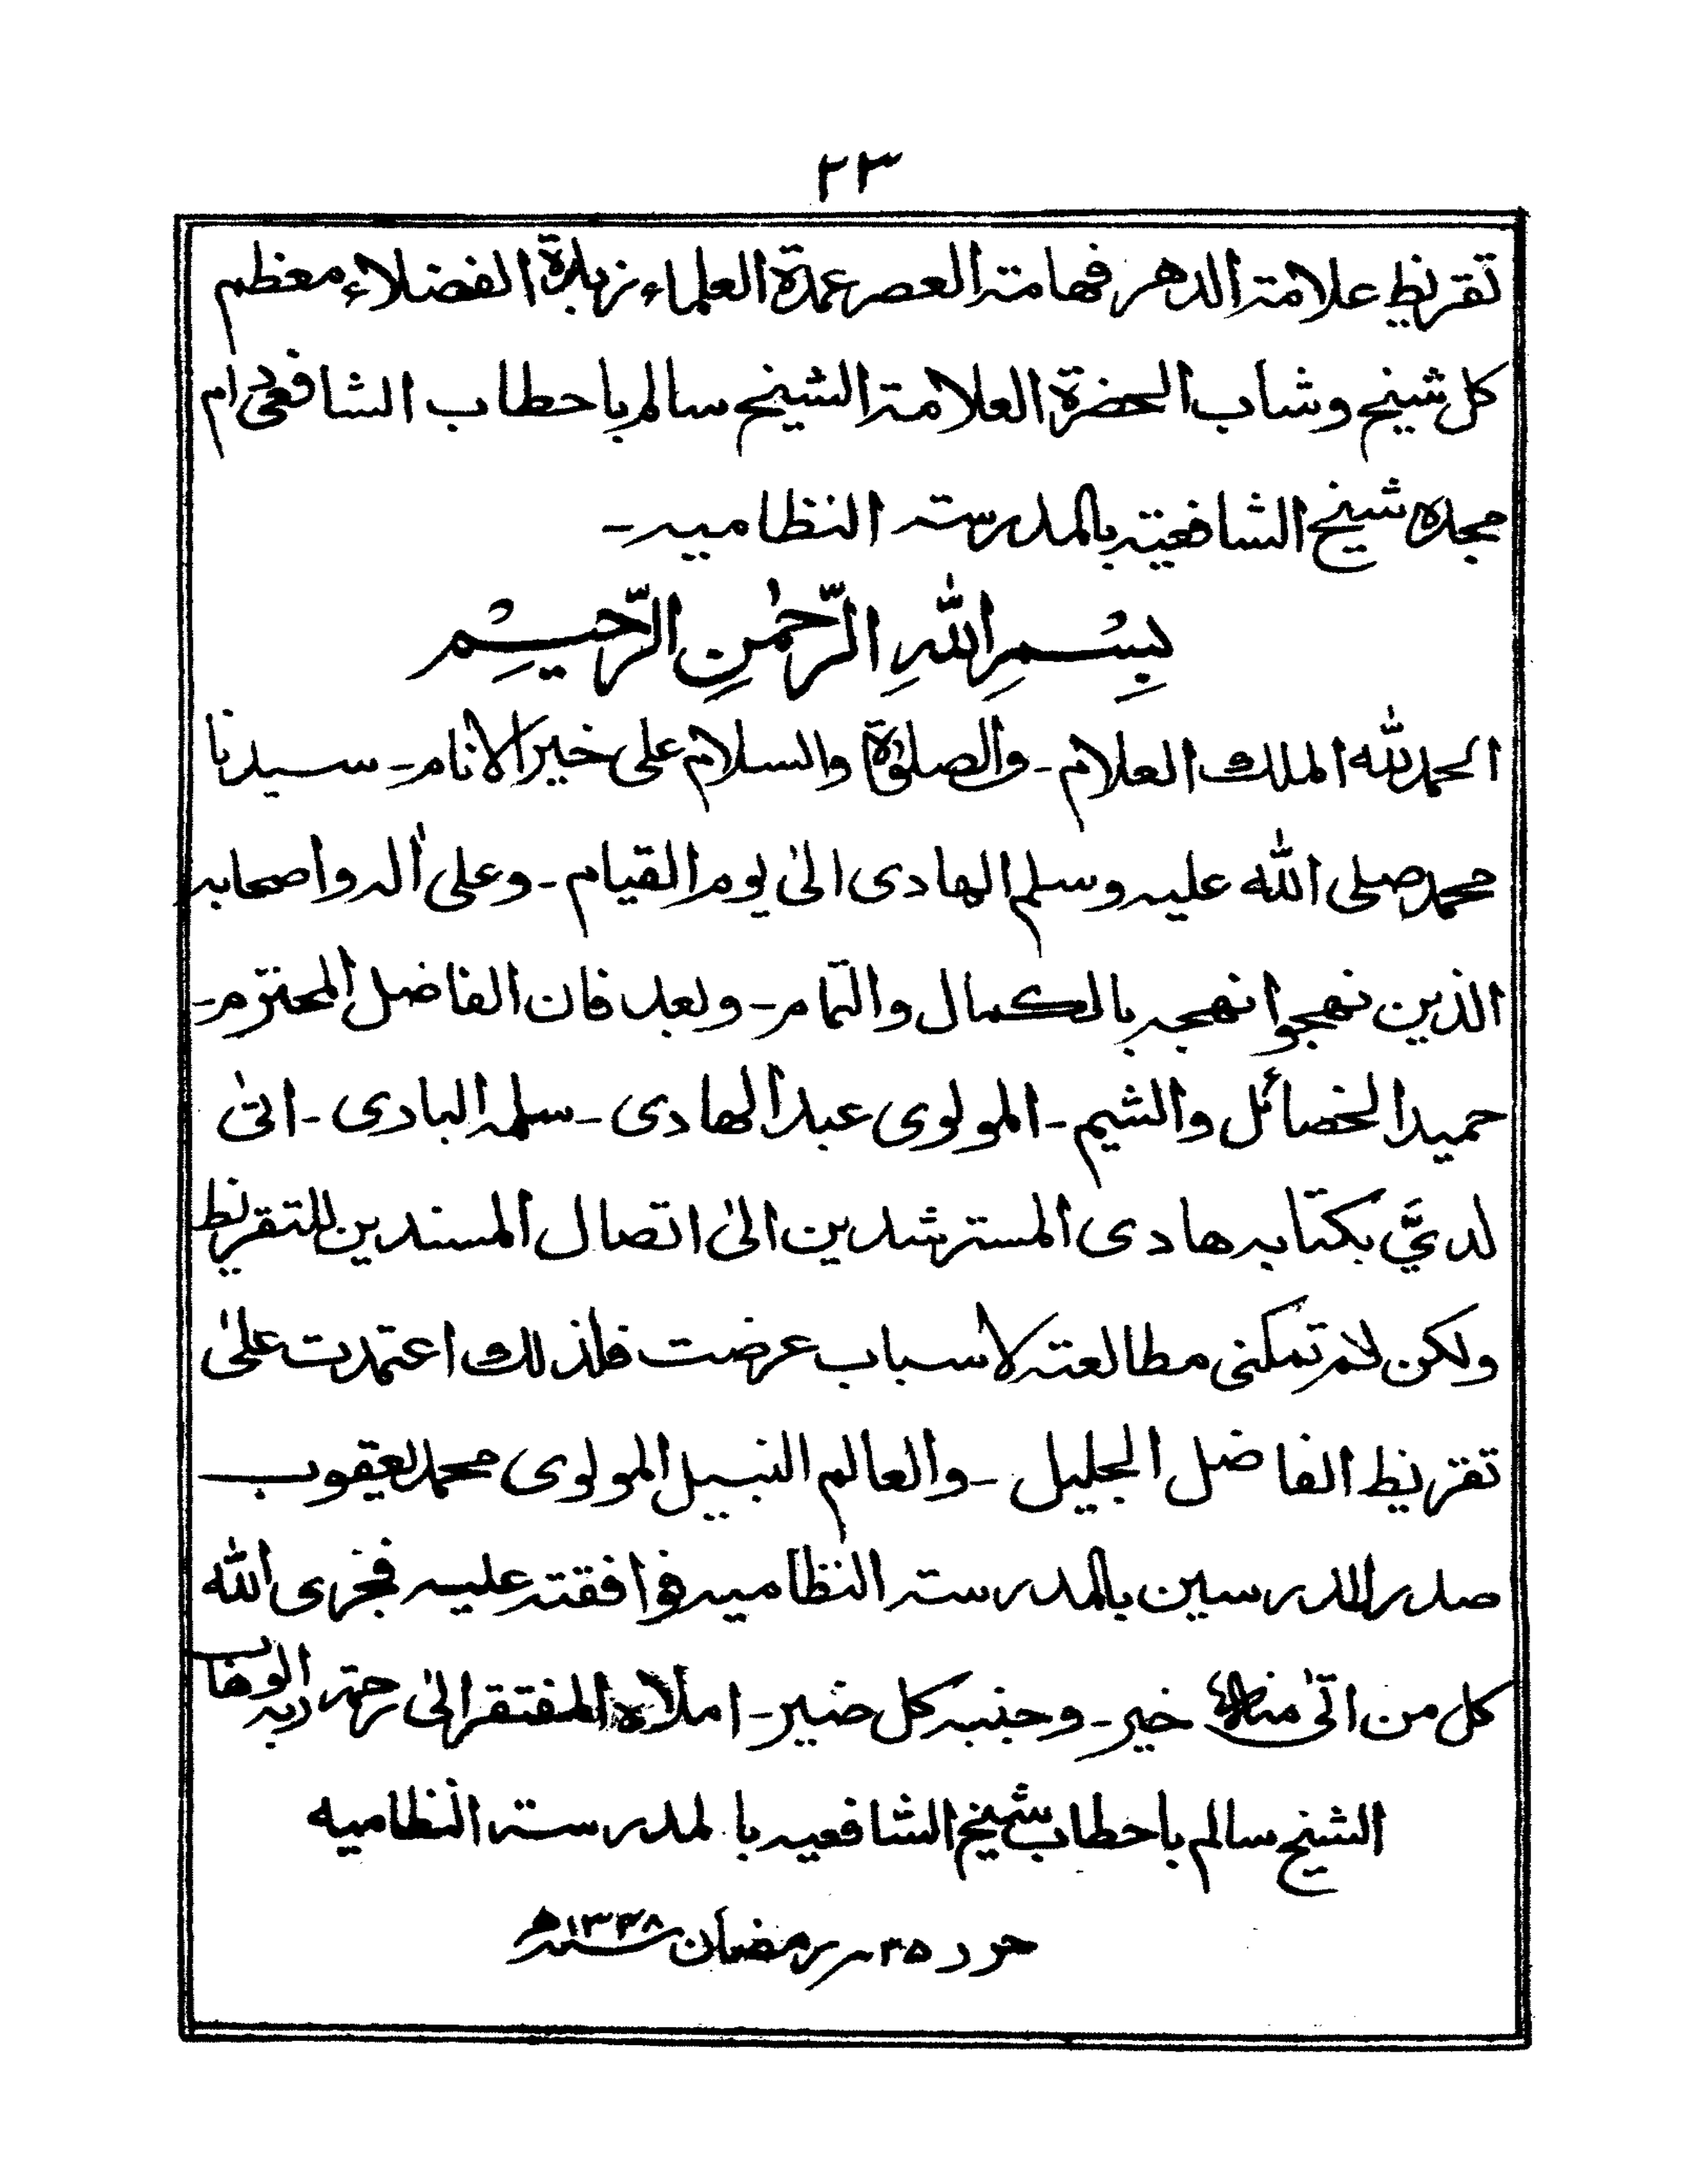 ٢٣
تقريظ علامة الدهر فهامة العصر عمدة العلماء زبدة الفضلاء معظم
كل شيخ وشاب الحضرة العلامة الشيخ سالم باحطاب الشافعى دام
مجده شيخ الشافعية بالمدرسة النظاميه -
بِسْمِ اللهِ الرَّحْمٰنِ الرَّحِيْمِ
الحمد لله الملك العلام - والصلوٰة والسلام على خير الانام - سيدنا
محمد صلى الله عليه وسلم الهادى الىٰ يوم القيام - وعلى اٰله واصحابه
الذين نهجوا نهجه بالكمال والتمام - وبعد فان الفاضل المحترم -
حميد الخصائل والشيم - المولوى عبد الهادى - سلمه البادى - اتىٰ
لدىَّ بكتابه هادى المسترشدين الىٰ اتصال المسندين للتقريظ
ولكن لم تمكنى مطالعته لاسباب عرضت فلذلك اعتمدت علىٰ
تقريظ الفاضل الجليل - والعالم النبيل المولوى محمد يعقوب
صدر المدرسين بالمدرسة النظاميه فوافقته عليه فجزى الله
كل من اتىٰ خير - وجنبه كل ضير - املاه المفتقر الىٰ رحمة ربه الوهاب
الشيخ سالم باحطاب شيخ الشافعيه بالمدرسة النظاميه
حرر رمضان سنة ١٣٣٨ه